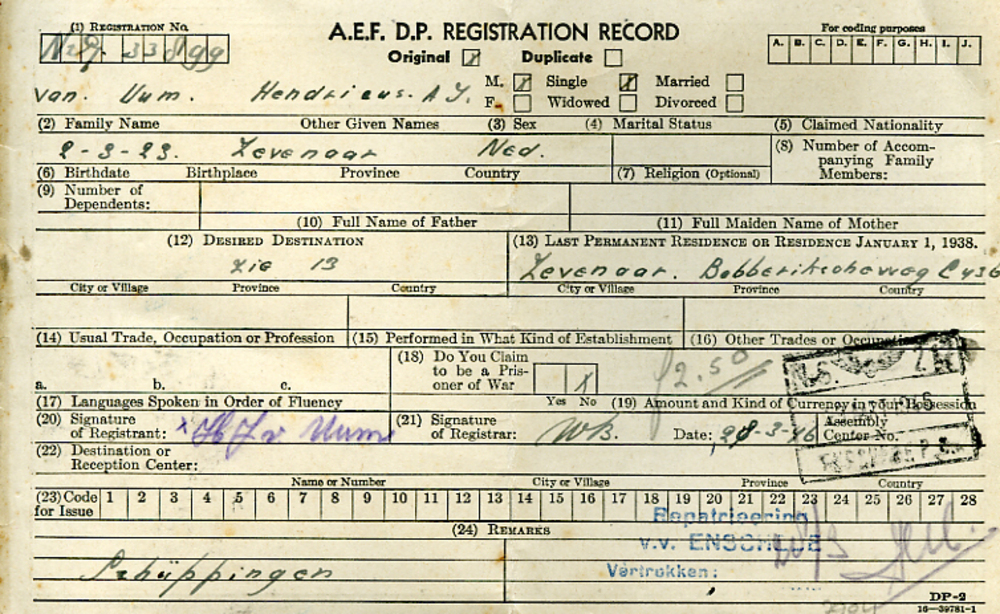 (1) REGISTRATION No.
A.E.F. D.P. REGISTRATION RECORD
For coding purposes
Original ☒ Duplicate ☐
A. B. C. D. E. F. G. H. I. J.
M. ☒ Single ☒ Married ☐
van. Uum. Hendricus. A J.
F. ☐ Widowed ☐ Divorced ☐
(2) Family Name Other Given Names (3) Sex (4) Marital Status (5) Claimed Nationality
2-3-23. Zevenaar Ned.
(8) Number of Accompanying Family Members:
(6) Birthdate Birthplace Province Country (7) Religion (Optional)
(9) Number of Dependents:
(10) Full Name of Father (11) Full Maiden Name of Mother
(12) DESIRED DESTINATION (13) LAST PERMANENT RESIDENCE OR RESIDENCE JANUARY 1, 1938.
zie 13 Zevenaar.
City or Village Province Country City or Village Province Country
(14) Usual Trade, Occupation or Profession (15) Performed in What Kind of Establishment (16) Other Trades or Occupations
(18) Do You Claim to be a Prisoner of War
a. b. c.
Yes No
2.50
(17) Languages Spoken in Order of Fluency (19) Amount and Kind of Currency in your Possession
(20) Signature of Registrant: x H J v Uum (21) Signature of Registrar: Date: Assembly Center No.
(22) Destination or Reception Center:
Name or Number City or Village Province Country
(23) Code for Issue 1 2 3 4 5 6 7 8 9 10 11 12 13 14 15 16 17 18 19 20 21 22 23 24 25 26 27 28
Repatrieering
(24) REMARKS
v.v. ENSCHEDE
Schüppingen
Vertrokken:
DP-2
16-39781-1